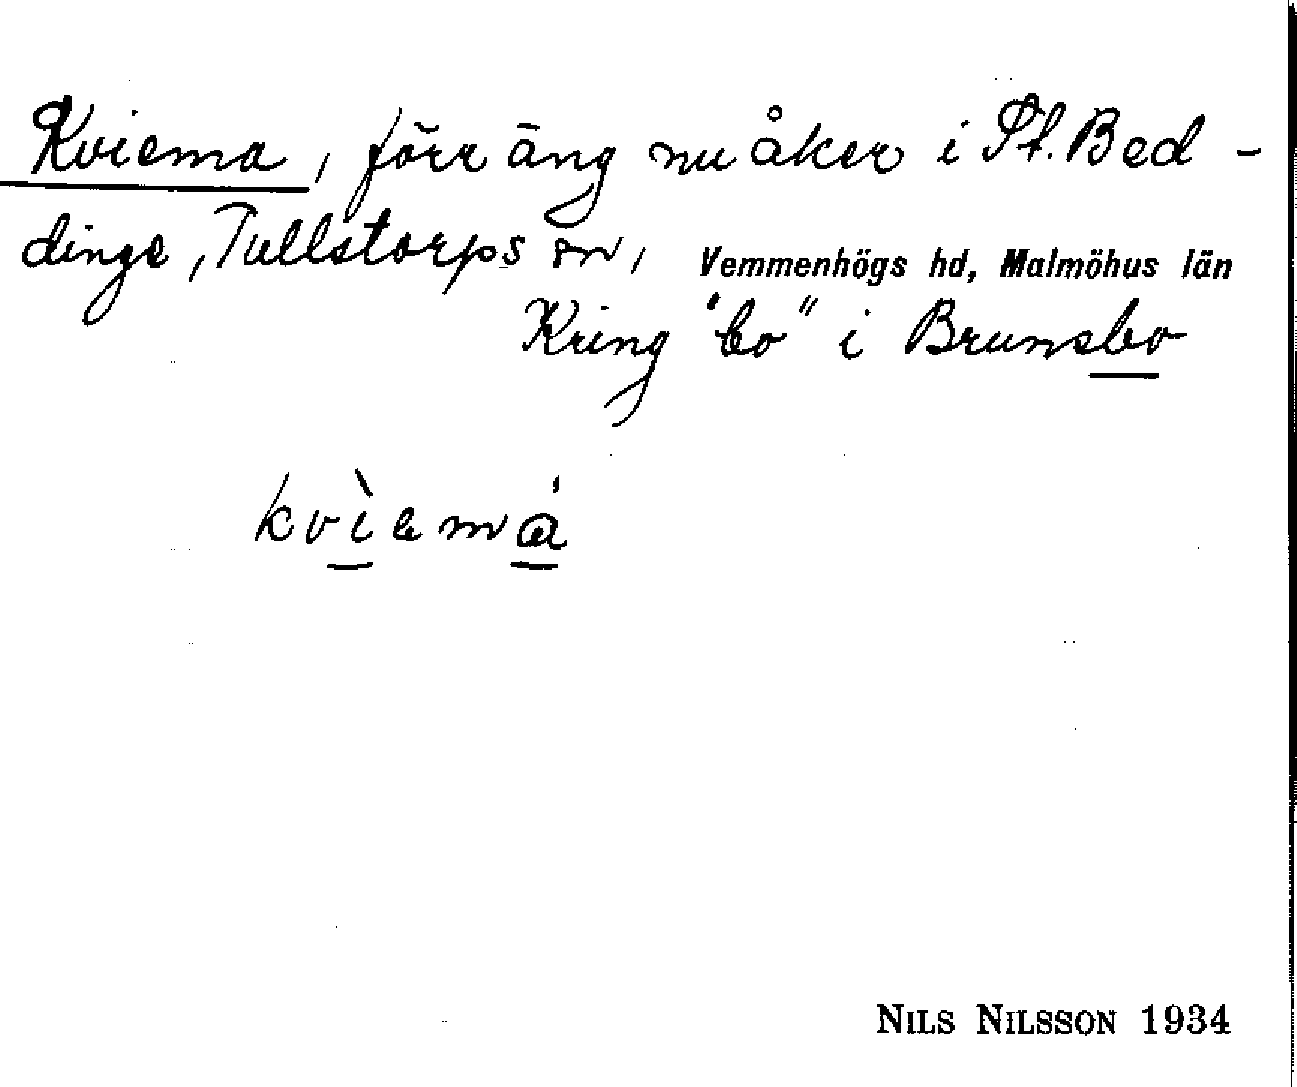 Kviema, förr äng nu åker i St. Bed-
dinge, Tullstorps sn, Vemmenhögs hd, Malmöhus län
Kring "bo" i Brunsbo
kvìemá
NILS NILSSON 1934